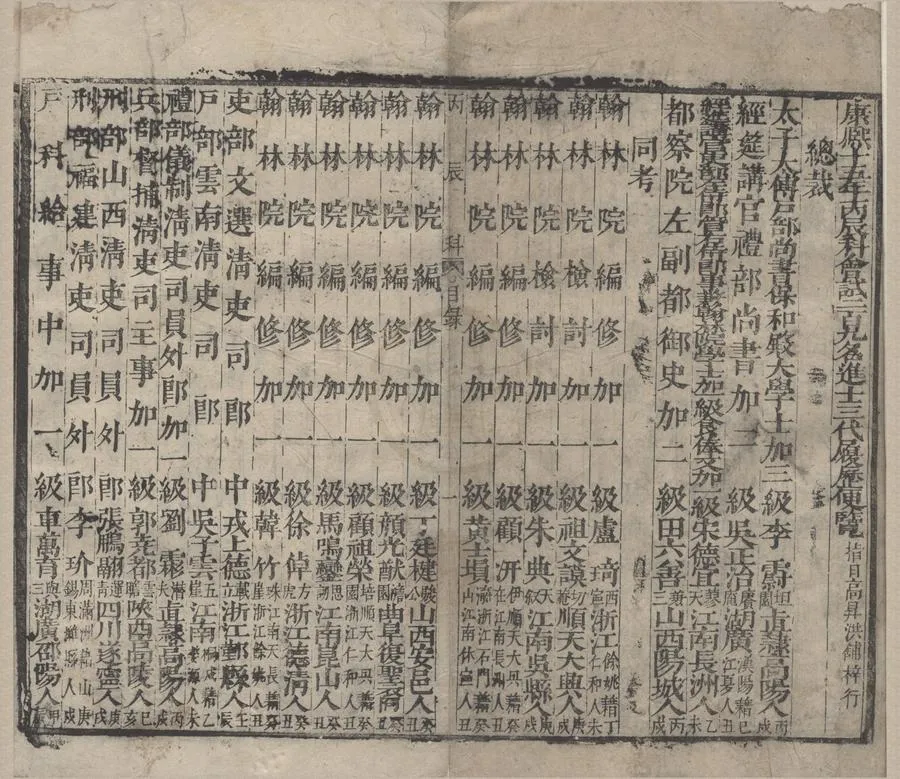 康熙十五年丙辰科會試二百九名進士三代履歷便覽 指日高昇洪鋪梓行
總裁
太子太傅戶部尚書保和殿大學士加三級李霨坦園直隸高陽人丙戌
經筵講官禮部尚書加一級吳正治賡菴湖廣漢陽籍江夏人己丑
級宋德宜蓼天江南長洲人乙未
都察院左副都御史加二級田六善兼山山西陽城人丙戌
同考
翰林院編修加一級盧琦西寧浙江餘姚籍仁和人丁未
翰林院檢討加一級祖文謨切菴順天大興人戌
翰林院檢討加一級朱典叙江南吳縣人庚戌
翰林院編修加一級顧汧伊在順天大興籍江南長洲人癸丑
翰林院編修加一級黃士塤山浙江石門籍江南休寧人癸丑
丙辰科 目錄 一
翰林院編修加一級丁廷楗駿公山西安邑人丑
翰林院編修加一級顏光猷曲阜復聖裔癸丑
翰林院編修加一級顧祖榮培園順天大興籍浙江仁和人癸丑
翰林院編修加一級馬鳴鑾江南崑山人丑
翰林院編修加一級徐倬方虎浙江德清人癸丑
翰林院編修加一級韓竹珠崖江南天長籍浙江餘姚人癸丑
吏部文選清吏司郎中戎上德浙江鄞縣人壬辰
戶部雲南清吏司郎中吳子雲五崖江南桐城籍人乙未
禮部儀制清吏司員外郎加一級劉霖潛夫直隸高陽人丙戌
兵部督捕清吏司主事加一級郭堯都雲陝西高陵人己亥
刑部山西清吏司員外郎張鵬翮運青四川遂寧人庚戌
刑部福建清吏司員外郎李玠周錫滿洲籍山東濰縣人庚戌
戶科給事中加一級車萬育與三湖廣邵陽人甲辰